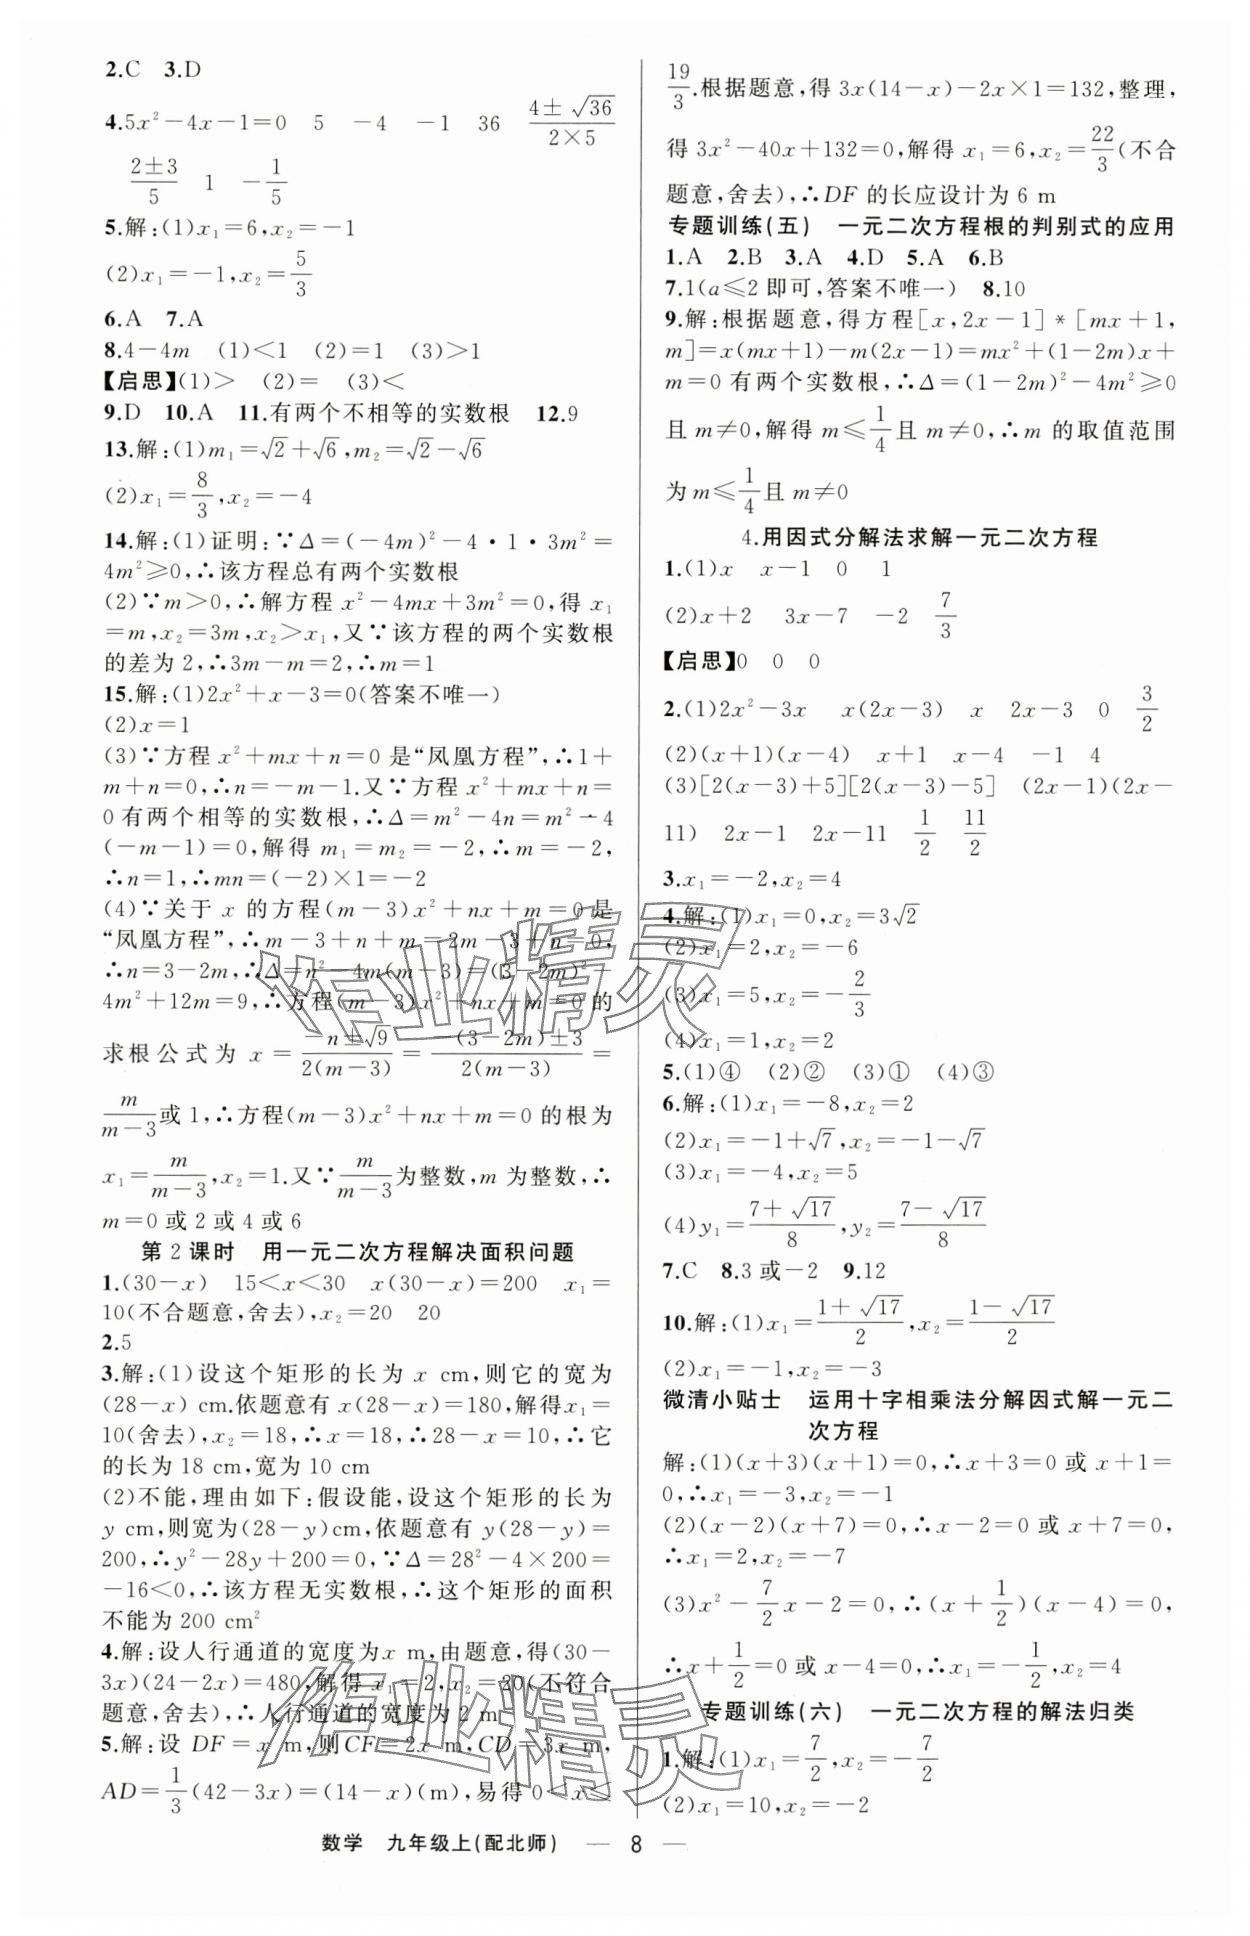 2.C 3.D
4.5x²-4x-1=0 5 -4 -1 36 (4±√36)/(2×5)
(2±3)/5 1 -1/5
5.解:(1)x₁=6,x₂=-1
(2)x₁=-1,x₂=5/3
6.A 7.A
8.4-4m (1)<1 (2)=1 (3)>1
【启思】(1)> (2)= (3)<
9.D 10.A 11.有两个不相等的实数根 12.9
13.解:(1)m₁=√2+√6,m₂=√2-√6
(2)x₁=8/3,x₂=-4
14.解:(1)证明:∵Δ=(-4m)²-4·1·3m²=
4m²≥0,∴该方程总有两个实数根
(2)∵m>0,∴解方程 x²-4mx+3m²=0,得 x₁
=m,x₂=3m,x₂>x₁,又∵该方程的两个实数根
的差为2,∴3m-m=2,∴m=1
15.解:(1)2x²+x-3=0(答案不唯一)
(2)x=1
(3)∵方程 x²+mx+n=0 是“凤凰方程”,∴1+
m+n=0,∴n=-m-1.又∵方程 x²+mx+n=
0有两个相等的实数根,∴Δ=m²-4n=m²-4
(-m-1)=0,解得 m₁=m₂=-2,∴m=-2,
∴n=1,∴mn=(-2)×1=-2
(4)∵关于 x 的方程(m-3)x²+nx+m=0 是
“凤凰方程”,∴m-3+n+m=2m-3+n=0,
∴n=3-2m,∴Δ=n²-4m(m-3)=(3-2m)²-
4m²+12m=9,∴方程(m-3)x²+nx+m=0 的
求根公式为 x=(-n±√9)/(2(m-3))=(-(3-2m)±3)/(2(m-3))=
m/(m-3)或1,∴方程(m-3)x²+nx+m=0 的根为
x₁=m/(m-3),x₂=1.又∵m/(m-3)为整数,m 为整数,∴
m=0 或 2 或 4 或 6
第2课时 用一元二次方程解决面积问题
1.(30-x) 15<x<30 x(30-x)=200 x₁=
10(不合题意,舍去),x₂=20 20
2.5
3.解:(1)设这个矩形的长为 x cm,则它的宽为
(28-x) cm.依题意有 x(28-x)=180,解得x₁=
10(舍去),x₂=18,∴x=18,∴28-x=10,∴它
的长为 18 cm,宽为 10 cm
(2)不能,理由如下:假设能,设这个矩形的长为
y cm,则宽为(28-y)cm,依题意有 y(28-y)=
200,∴y²-28y+200=0,∵Δ=28²-4×200=
-16<0,∴该方程无实数根,∴这个矩形的面积
不能为 200 cm²
4.解:设人行通道的宽度为x m,由题意,得(30-
3x)(24-2x)=480,解得 x₁=2,x₂=20(不符合
题意,舍去),∴人行通道的宽度为 2 m
5.解:设 DF=x m,则CF=2x m,CD=3x m,
AD=1/3(42-3x)=(14-x)(m),易得 0<x<
19/3.根据题意,得 3x(14-x)-2x×1=132,整理,
得 3x²-40x+132=0,解得 x₁=6,x₂=22/3(不合
题意,舍去),∴DF 的长应设计为 6 m
专题训练(五) 一元二次方程根的判别式的应用
1.A 2.B 3.A 4.D 5.A 6.B
7.1(a≤2 即可,答案不唯一) 8.10
9.解:根据题意,得方程[x,2x-1]*[mx+1,
m]=x(mx+1)-m(2x-1)=mx²+(1-2m)x+
m=0 有两个实数根,∴Δ=(1-2m)²-4m²≥0
且 m≠0,解得 m≤1/4且 m≠0,∴m 的取值范围
为 m≤1/4且 m≠0
4.用因式分解法求解一元二次方程
1.(1)x x-1 0 1
(2)x+2 3x-7 -2 7/3
【启思】0 0 0
2.(1)2x²-3x x(2x-3) x 2x-3 0 3/2
(2)(x+1)(x-4) x+1 x-4 -1 4
(3)[2(x-3)+5][2(x-3)-5] (2x-1)(2x-
11) 2x-1 2x-11 1/2 11/2
3.x₁=-2,x₂=4
4.解:(1)x₁=0,x₂=3√2
(2)x₁=2,x₂=-6
(3)x₁=5,x₂=-2/3
(4)x₁=1,x₂=2
5.(1)④ (2)② (3)① (4)③
6.解:(1)x₁=-8,x₂=2
(2)x₁=-1+√7,x₂=-1-√7
(3)x₁=-4,x₂=5
(4)y₁=(7+√17)/8,y₂=(7-√17)/8
7.C 8.3 或-2 9.12
10.解:(1)x₁=(1+√17)/2,x₂=(1-√17)/2
(2)x₁=-1,x₂=-3
微清小贴士 运用十字相乘法分解因式解一元二
次方程
解:(1)(x+3)(x+1)=0,∴x+3=0 或 x+1=
0,∴x₁=-3,x₂=-1
(2)(x-2)(x+7)=0,∴x-2=0 或 x+7=0,
∴x₁=2,x₂=-7
(3)x²-7/2x-2=0,∴(x+1/2)(x-4)=0,
∴x+1/2=0 或 x-4=0,∴x₁=-1/2,x₂=4
专题训练(六) 一元二次方程的解法归类
1.解:(1)x₁=7/2,x₂=-7/2
(2)x₁=10,x₂=-2
数学 九年级上(配北师) — 8 —
作业精灵
作业精灵